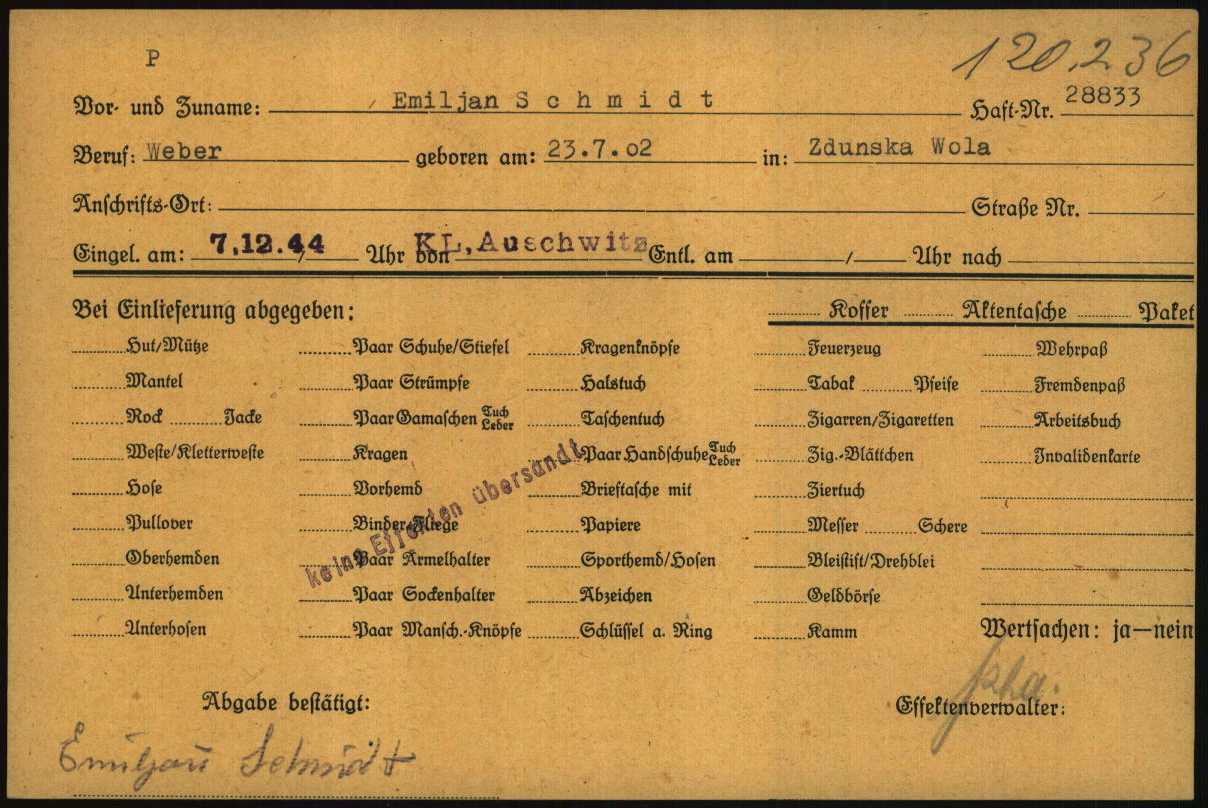 120.236
P
Vor- und Zuname: Emiljan Schmidt Haft-Nr. 28833
Beruf: Weber geboren am: 23.7.02 in: Zdunska Wola
Anschrifts-Ort: Straße Nr.
Eingel. am: 7.12.44 / Uhr von KL. Auschwitz Entl. am / Uhr nach
Bei Einlieferung abgegeben: Koffer Aktentasche Paket
Hut/Mütze Paar Schuhe/Stiefel Kragenknöpfe Feuerzeug Wehrpaß
Mantel Paar Strümpfe Halstuch Tabak Pfeife Fremdenpaß
Rock Jacke Paar Gamaschen Tuch Leder Taschentuch Zigarren/Zigaretten Arbeitsbuch
Weste/Kletterweste Kragen Paar Handschuhe Tuch Leder Zig.-Blättchen Invalidenkarte
Hose Vorhemd Brieftasche mit Ziertuch
Pullover Binder/Fliege Papiere Messer Schere
Oberhemden Paar Ärmelhalter Sporthemd/Hosen Bleistift/Drehblei
Unterhemden Paar Sockenhalter Abzeichen Geldbörse
Unterhosen Paar Mansch.-Knöpfe Schlüssel a. Ring Kamm Wertsachen: ja—nein
keine Effekten übersandt
Abgabe bestätigt: Effektenverwalter:
Emiljan Schmidt